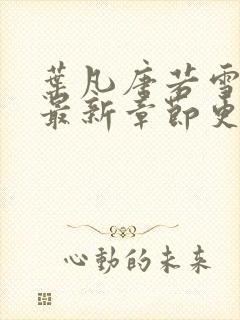 葉凡唐若雪
最新章節更
心動的未來